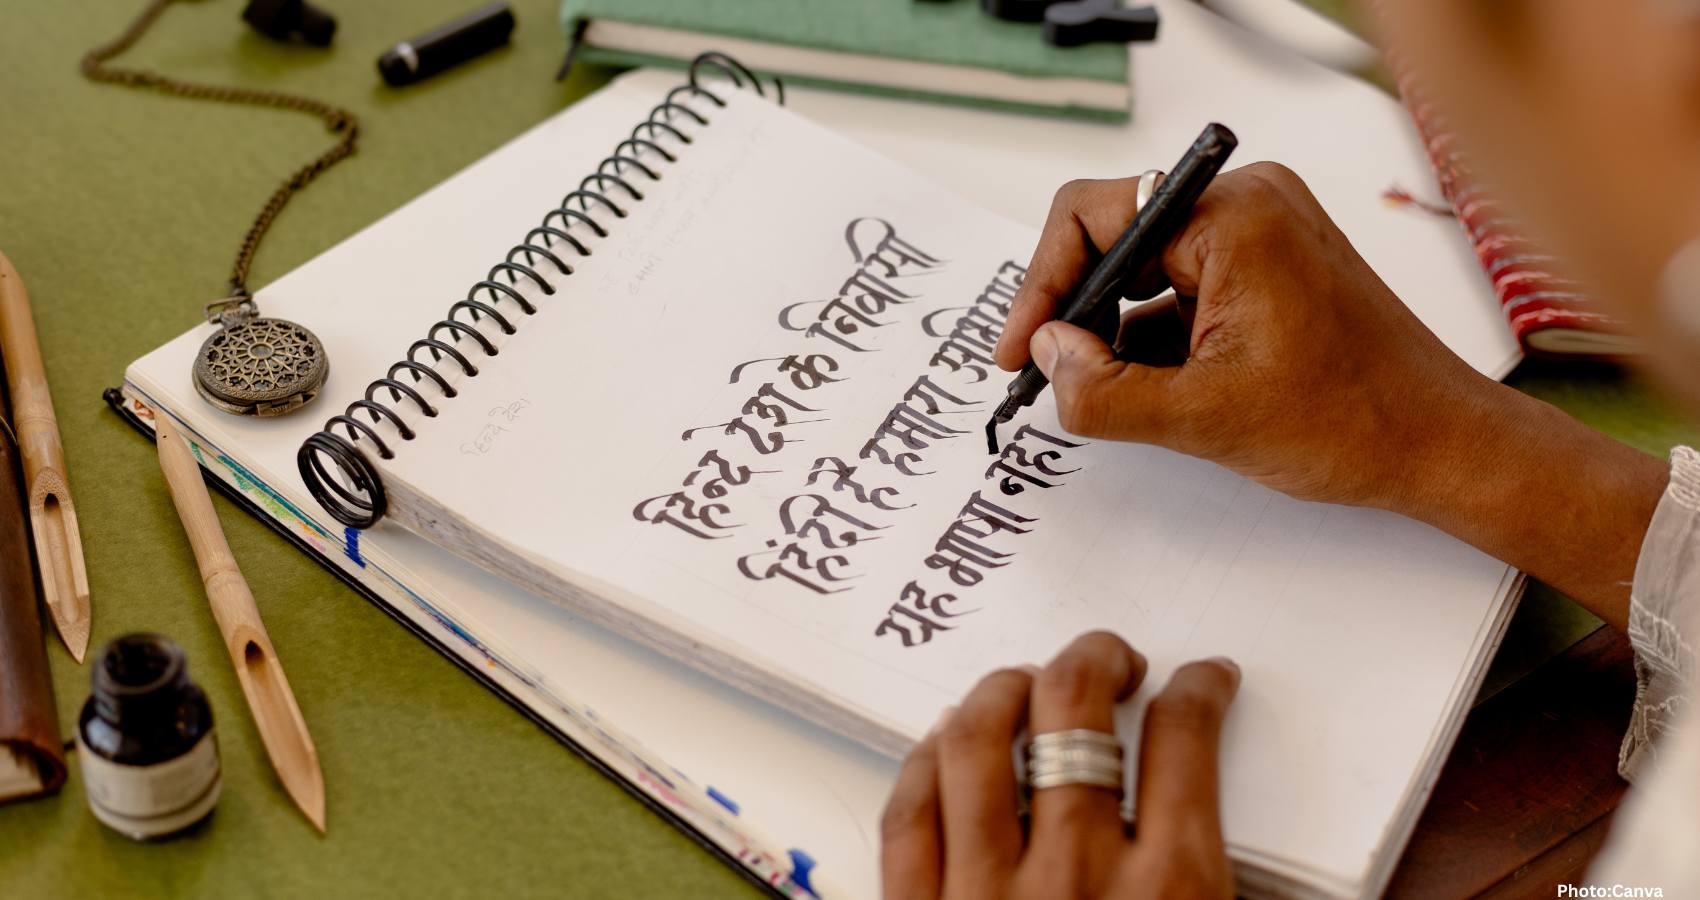 हिन्द देश के निवासी
हिंदी है हमारा अभिमान
यह भाषा नहा
Photo:Canva